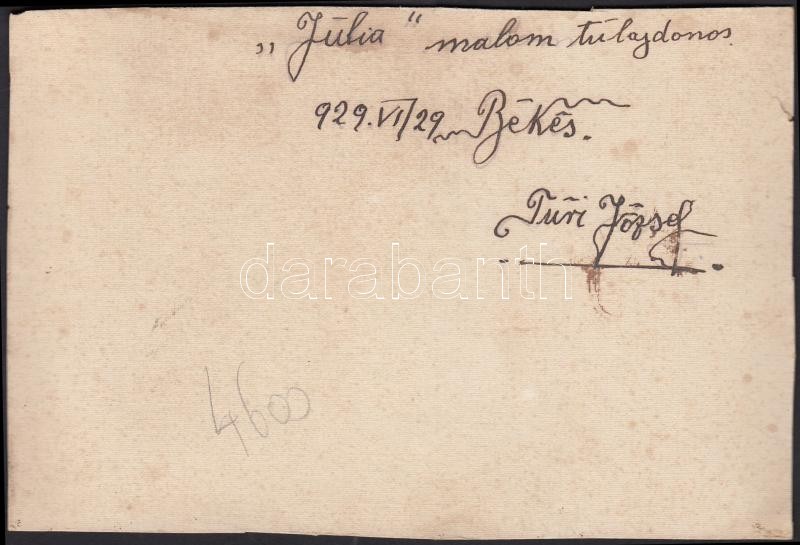 „Júlia“ malom túlajdonos.
929.VI/29 Békés.
Túri József
darabanth
4600